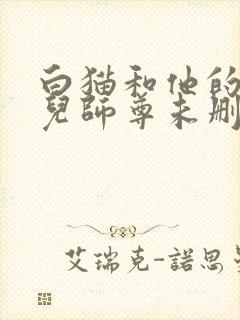 白猫和他的
兒師尊未刪
艾瑞克-諾思